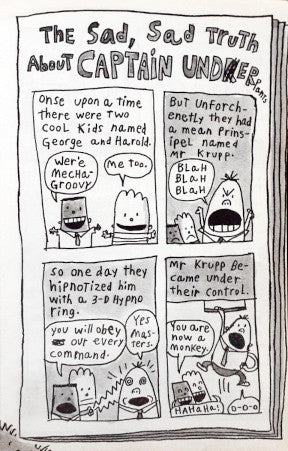 The Sad, Sad Truth
About CAPTAIN UNDERPANTS
Onse upon a time
there were two
cool Kids named
George and Harold.
Wer'e
Mecha-
Groovy
Me too.
But unforch-
enetly they had
a mean Prins-
ipel named
Mr Krupp.
BLaH
BLaH
BLaH
So one day they
hipnotized him
with a 3-D Hypno
ring.
you will obey
our every
command.
Yes
Mas-
ters.
Mr Krupp Be-
came under
their control.
You are
now a
monkey.
HAHaHa!
O-O-O